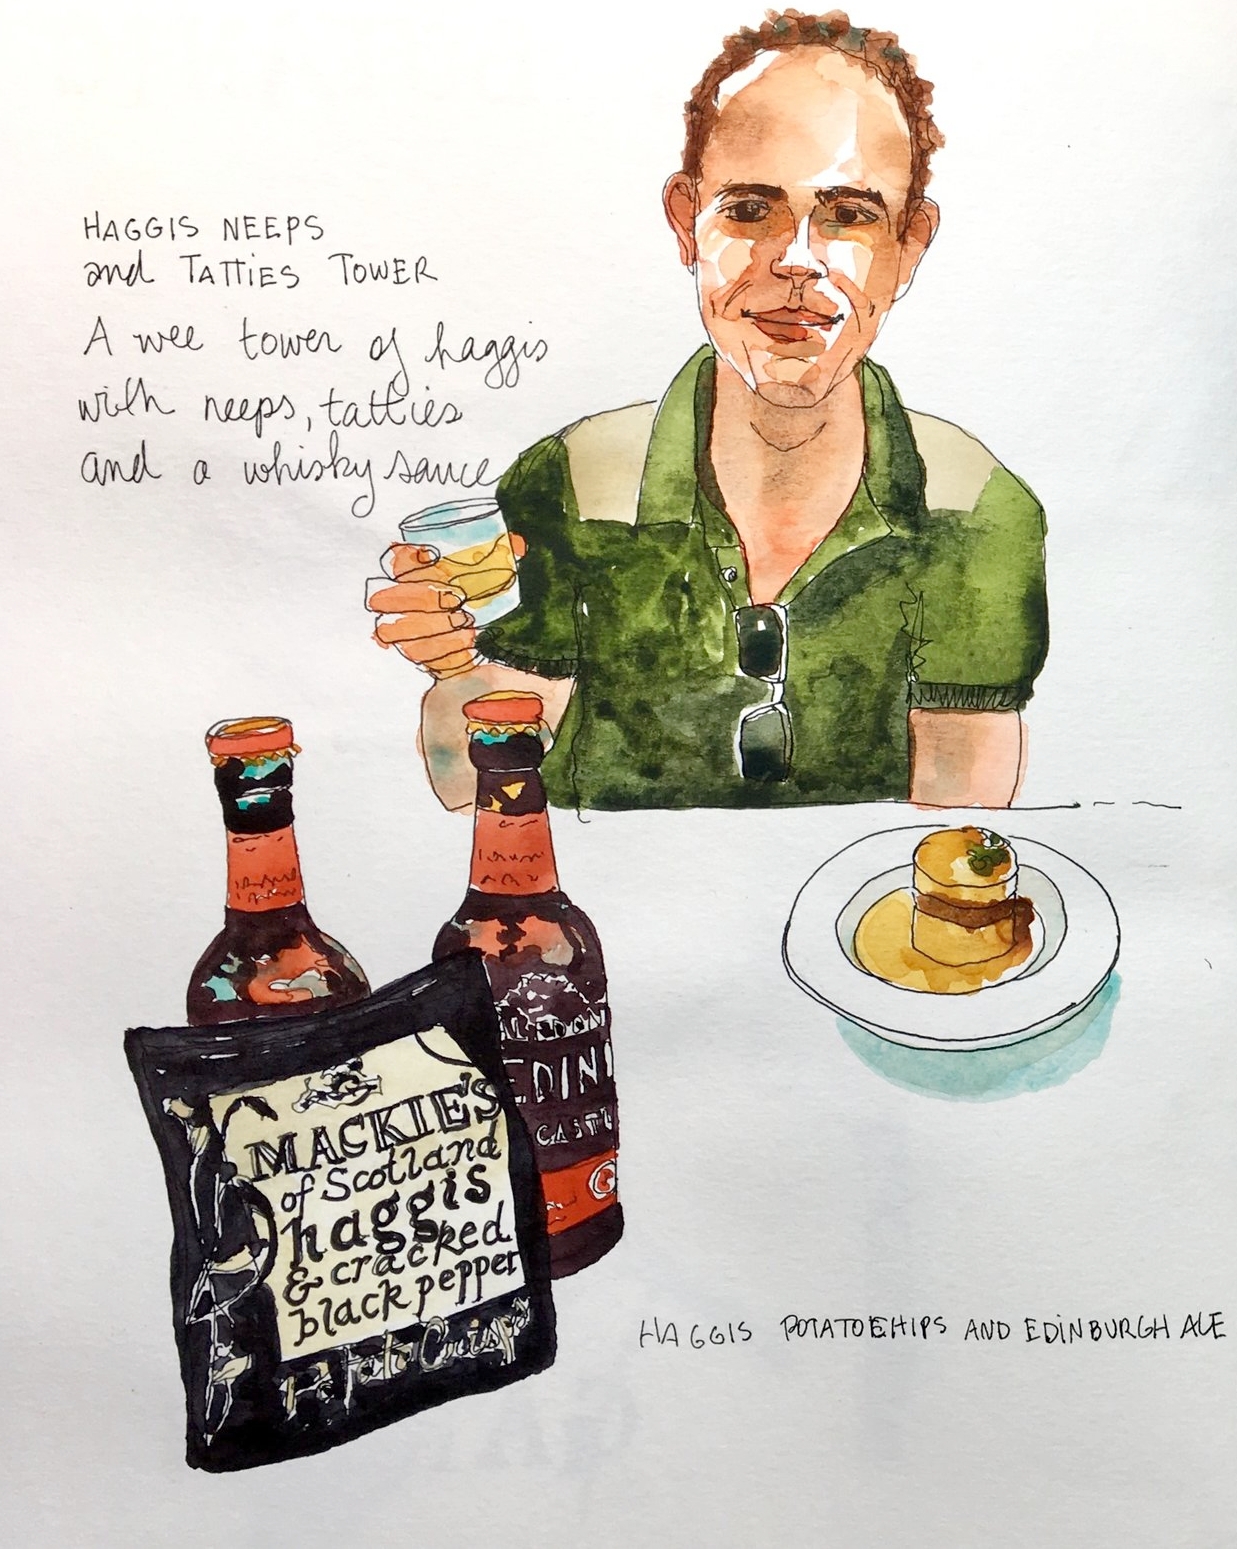 HAGGIS NEEPS
and TATTIES TOWER
A wee tower of haggis
with neeps, tatties
and a whisky sauce
EDIN
CAST
MACKIE'S
of Scotland
haggis
& cracked
black pepper
Potato Crisps
HAGGIS POTATOCHIPS AND EDINBURGH ALE